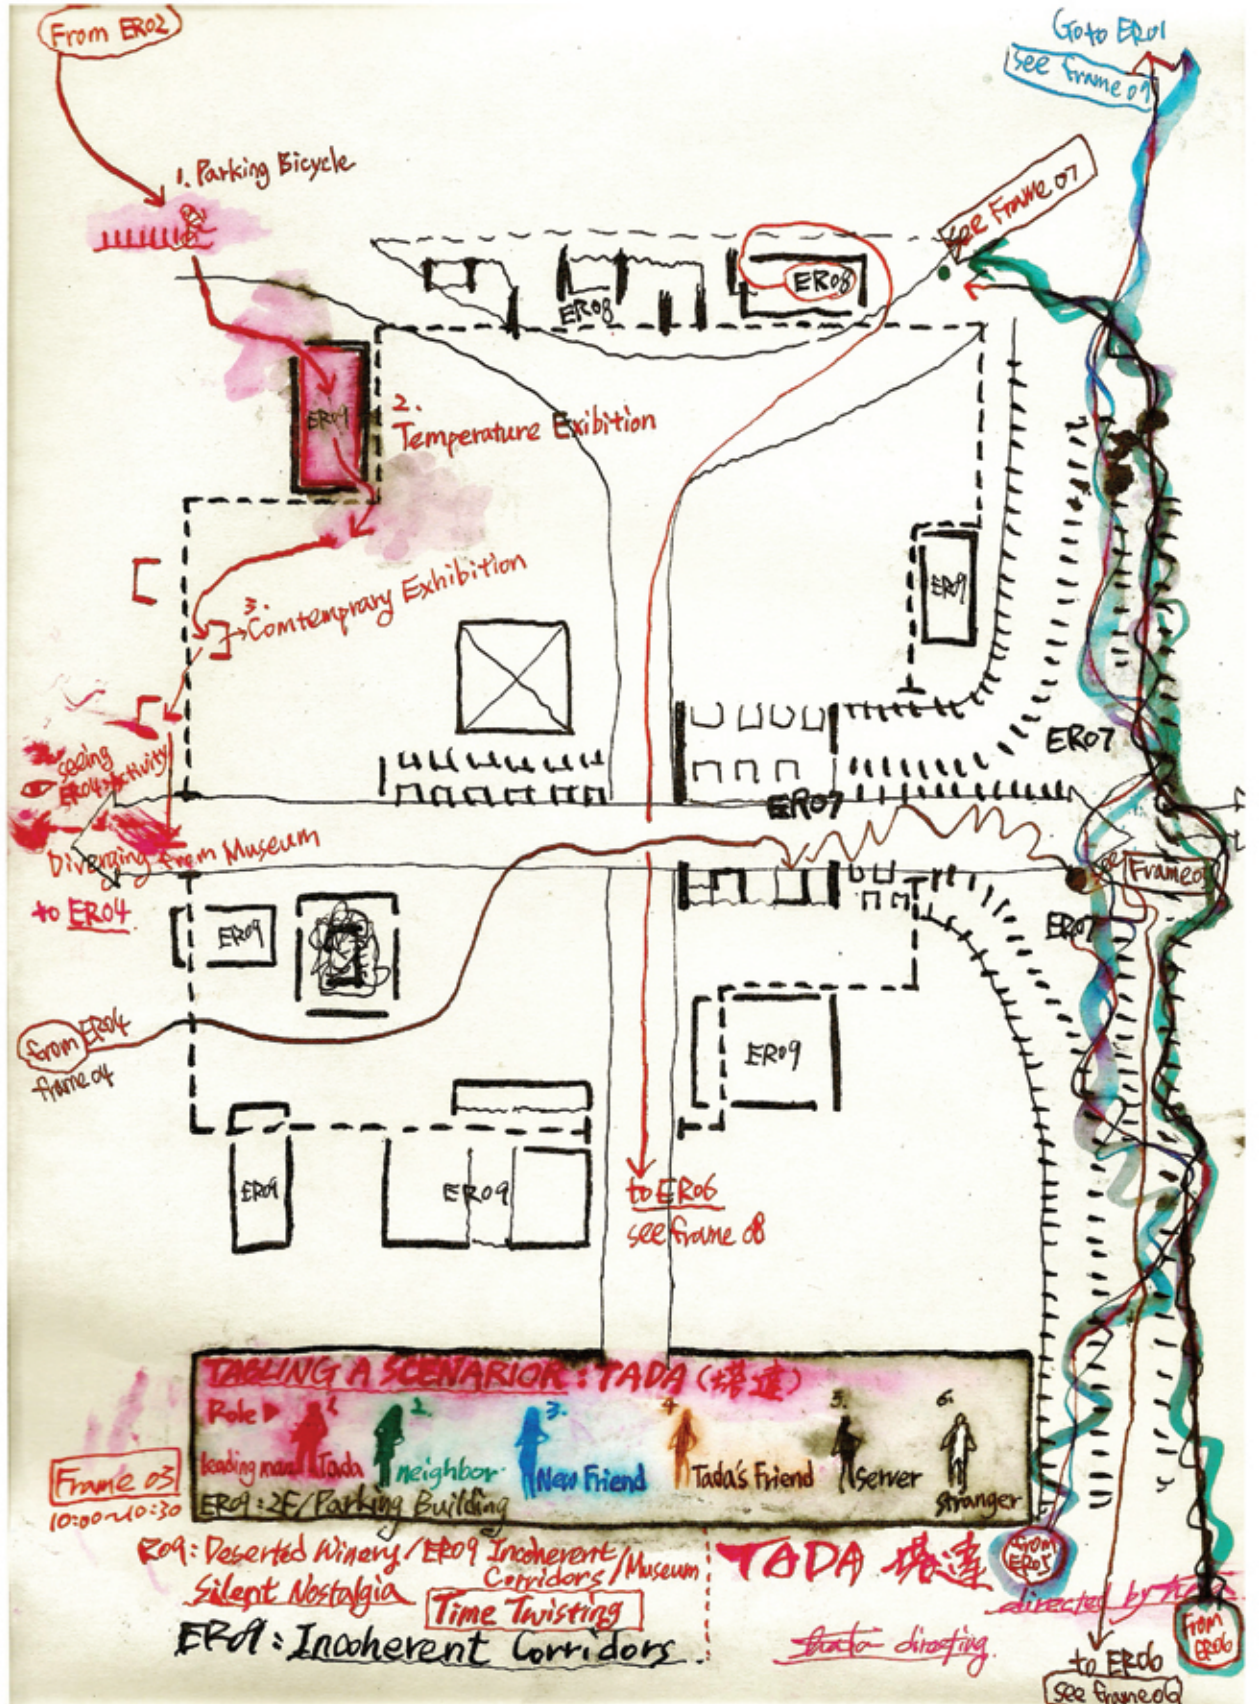 From ER02
Go to ER01
See frame 01
1. Parking Bicycle
See Frame 07
ER08
ER08
ER09
2.
Temperature Exibition
ER09
3.
Comtemprary Exhibition
ER07
seeing
ER04 Activity
ER07
Diverging from Museum
to ER04
see
Frame03
ER09
ER07
from ER04
frame 04
ER09
ER09
ER09
to ER06
see frame 08
TABLING A SCENARIOR: TADA (塔達)
Role
1.
2.
3.
4.
5.
6.
leading man Tada
neighbor
New Friend
Tada's Friend
Server
stranger
Frame 03
10:00~10:30
ER09: 2F/Parking Building
R09: Deserted Winery/ER09 Incoherent Corridors/Museum
Silent Nostalgia
Time Twisting
ER09: Incoherent Corridors.
TADA 塔達
from
ER05
directed by
directing.
from
ER06
to ER06
see frame 06